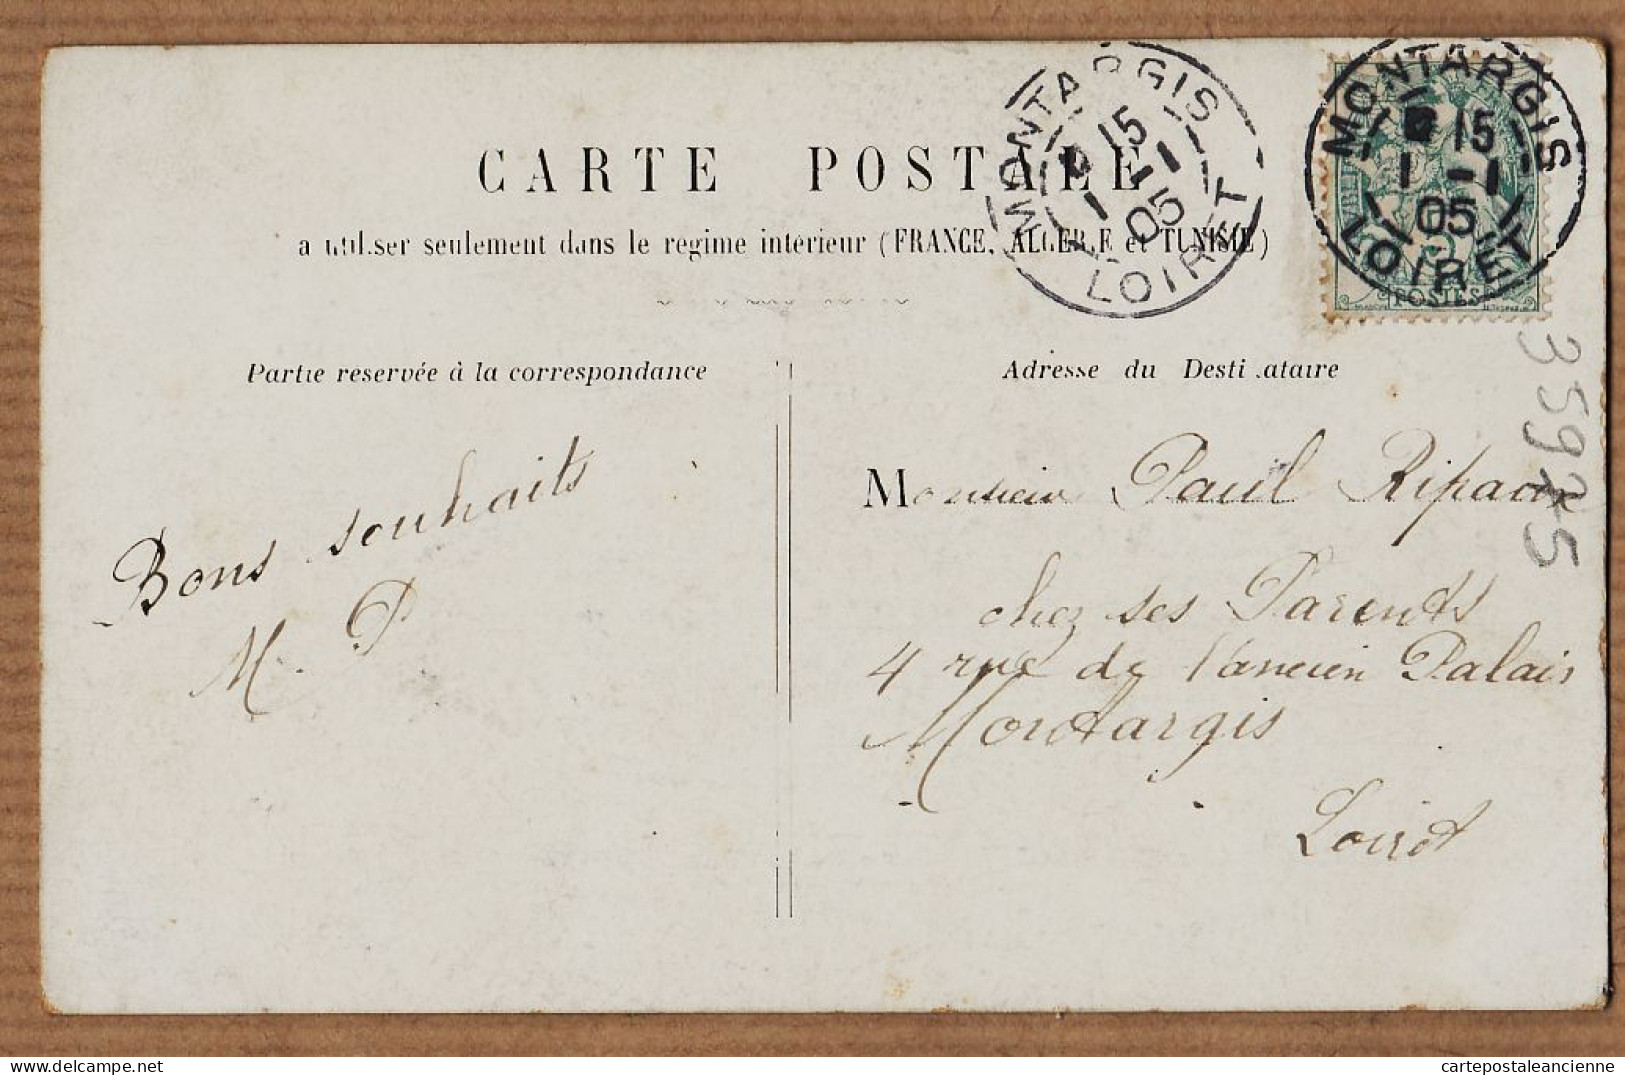 CARTE POSTALE
a utiliser seulement dans le regime interieur (FRANCE, ALGERIE et TUNISIE)
MONTARGIS
15
1 - 1
05
LOIRET
MONTARGIS
15
1 - 1
05
LOIRET
POSTES
Partie reservée à la correspondance
Adresse du Destinataire
Bons souhaits
M. P
Monsieur Paul
chez ses Parents
4 rue de l'ancien Palais
Montargis
Loiret
cartepostaleancienne